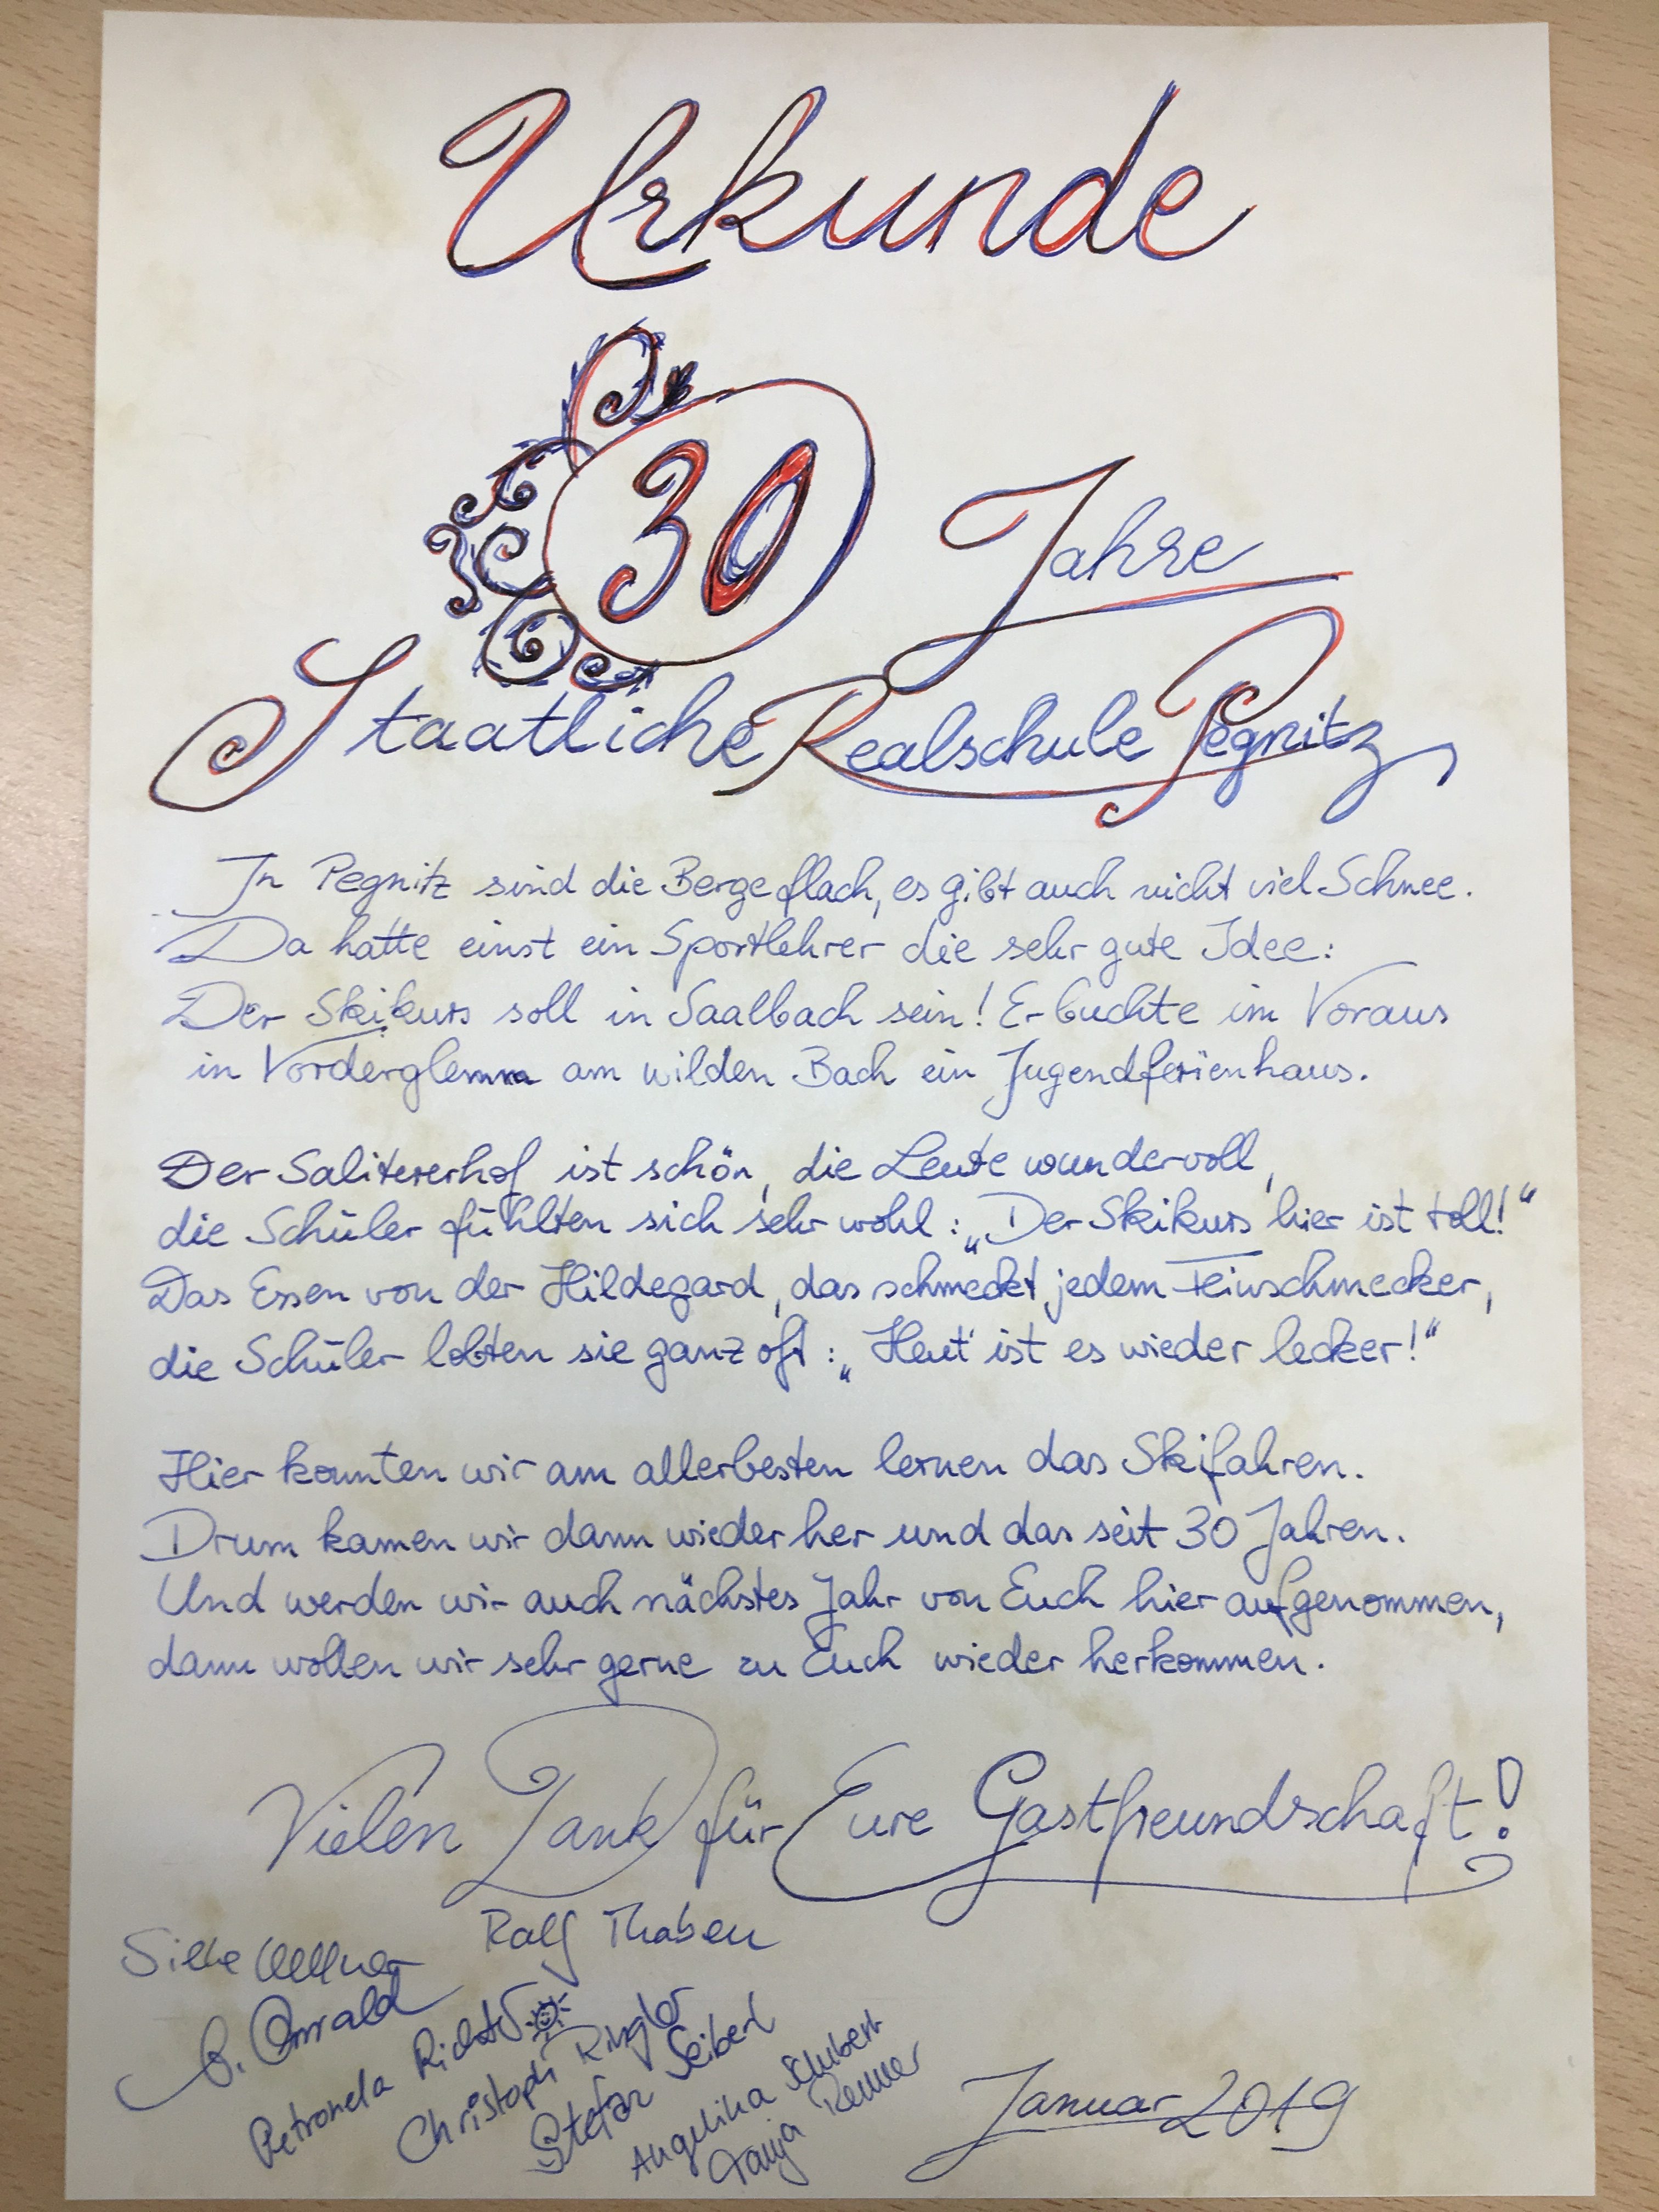 Urkunde
30 Jahre
Staatliche Realschule Pegnitz
In Pegnitz sind die Berge flach, es gibt auch nicht viel Schnee.
Da hatte einst ein Sportlehrer die sehr gute Idee:
Der Skikurs soll in Saalbach sein! Er buchte im Voraus
in Vorderglemm am wilden Bach ein Jugendferienhaus.
Der Salitererhof ist schön, die Leute wundervoll,
die Schüler fühlten sich sehr wohl: „Der Skikurs hier ist toll!“
Das Essen von der Hildegard, das schmeckt jedem Feinschmecker,
die Schüler lobten sie ganz oft: „Heut' ist es wieder lecker!“
Hier konnten wir am allerbesten lernen das Skifahren.
Drum kamen wir dann wieder her und das seit 30 Jahren.
Und werden wir auch nächstes Jahr von Euch hier aufgenommen,
dann wollen wir sehr gerne zu Euch wieder herkommen.
Vielen Dank für Eure Gastfreundschaft!
Ralf Thaben
Silke
Petronela Richter
Christoph Ringler
Stefan Seiberl
Angelika Schubert
Tanja Renner
Januar 2019